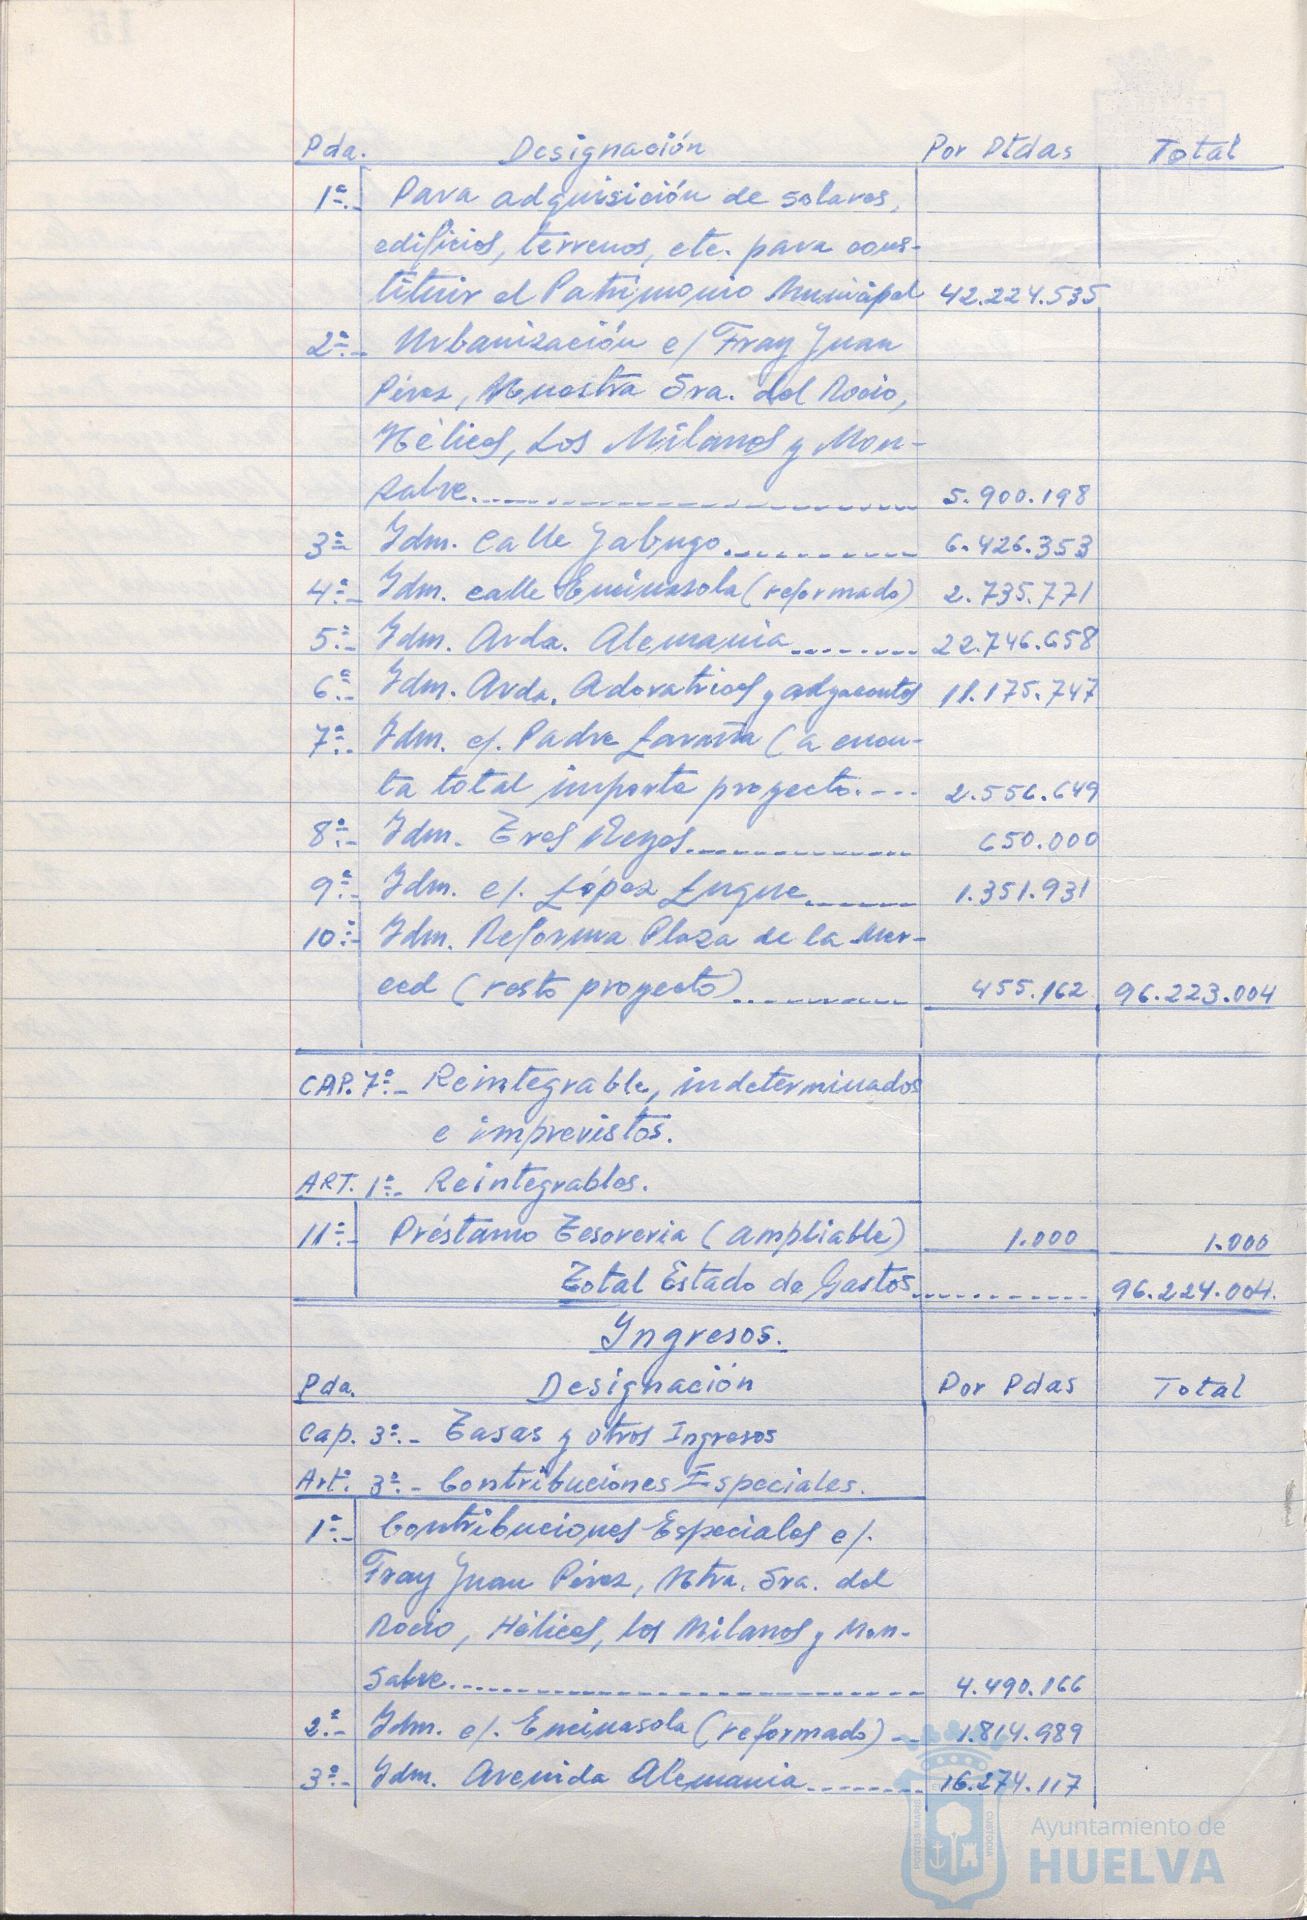 Pda. Designación Por Ptdas Total
1ª.- Para adquisición de solares,
edificios, terrenos, etc. para cons-
tituir el Patrimonio Municipal 42.224.535
2ª.- Urbanización c/ Fray Juan
Pérez, Nuestra Sra. del Rocio,
Hélices, Los Milanos y Mon-
salve.------------ 5.900.198
3ª.- Idm. Calle Jabugo.--------- 6.426.353
4ª.- Idm. calle Encinasola (reformado) 2.735.771
5ª.- Idm. Avda. Alemania-------- 22.746.658
6ª.- Idm. Avda. Adoratrices y adyacentes 11.175.747
7ª.- Idm. c/. Padre Laraña (a cuen-
ta total importe proyecto.---- 2.556.649
8ª.- Idm. Tres Reyes------------ 650.000
9ª.- Idm. c/. López Luque------- 1.351.931
10ª.- Idm. Reforma Plaza de la Mer-
ced (resto proyecto)---------- 455.162 96.223.004
CAP. 7º.- Reintegrable, indeterminados
e imprevistos.
ART. 1º.- Reintegrables.
11ª.- Préstamo Tesoreria (ampliable) 1.000 1.000
Total Estado de Gastos---------- 96.224.004.
Ingresos.
Pda. Designación Por Pdas Total
Cap. 3º.- Tasas y otros Ingresos
Artº. 3º.- Contribuciones Especiales.
1ª.- Contribuciones Especiales c/.
Fray Juan Pérez, Ntra. Sra. del
Rocio, Hélices, los Milanos y Mon-
salve.------------------ 4.490.166
2ª.- Idm. c/. Encinasola (reformado)-- 1.814.989
3ª.- Idm. Avenida Alemania-------- 16.274.117
PORTUS MARIS
CUSTODIA
Ayuntamiento de
HUELVA